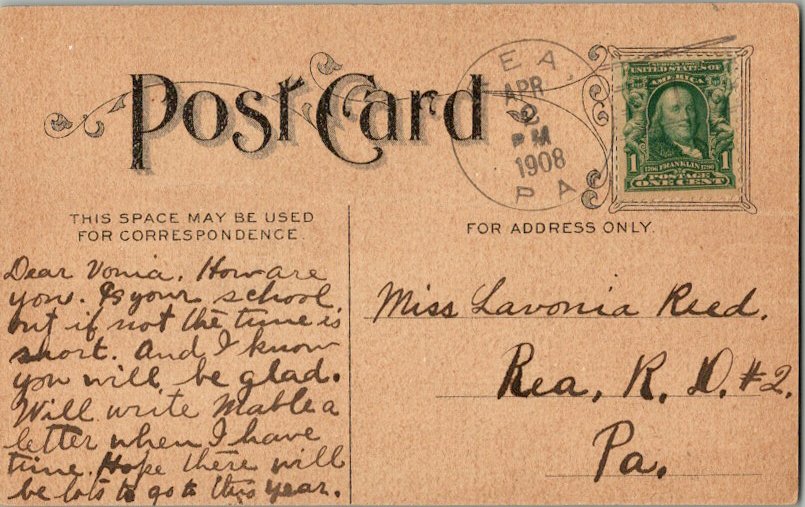 Post Card
EA,
APR
2
PM
1908
PA
SERIES 1902
UNITED STATES OF
AMERICA
1 1
1706 FRANKLIN 1790
POSTAGE
ONE CENT
THIS SPACE MAY BE USED
FOR CORRESPONDENCE.
FOR ADDRESS ONLY.
Dear Vonia. How are
you. Is your school
out if not the time is
short. And I know
you will be glad.
Will write Mable a
letter when I have
time. Hope there will
be lots to go to this year.
Miss Lavonia Reed.
Rea, R. D. #2.
Pa.